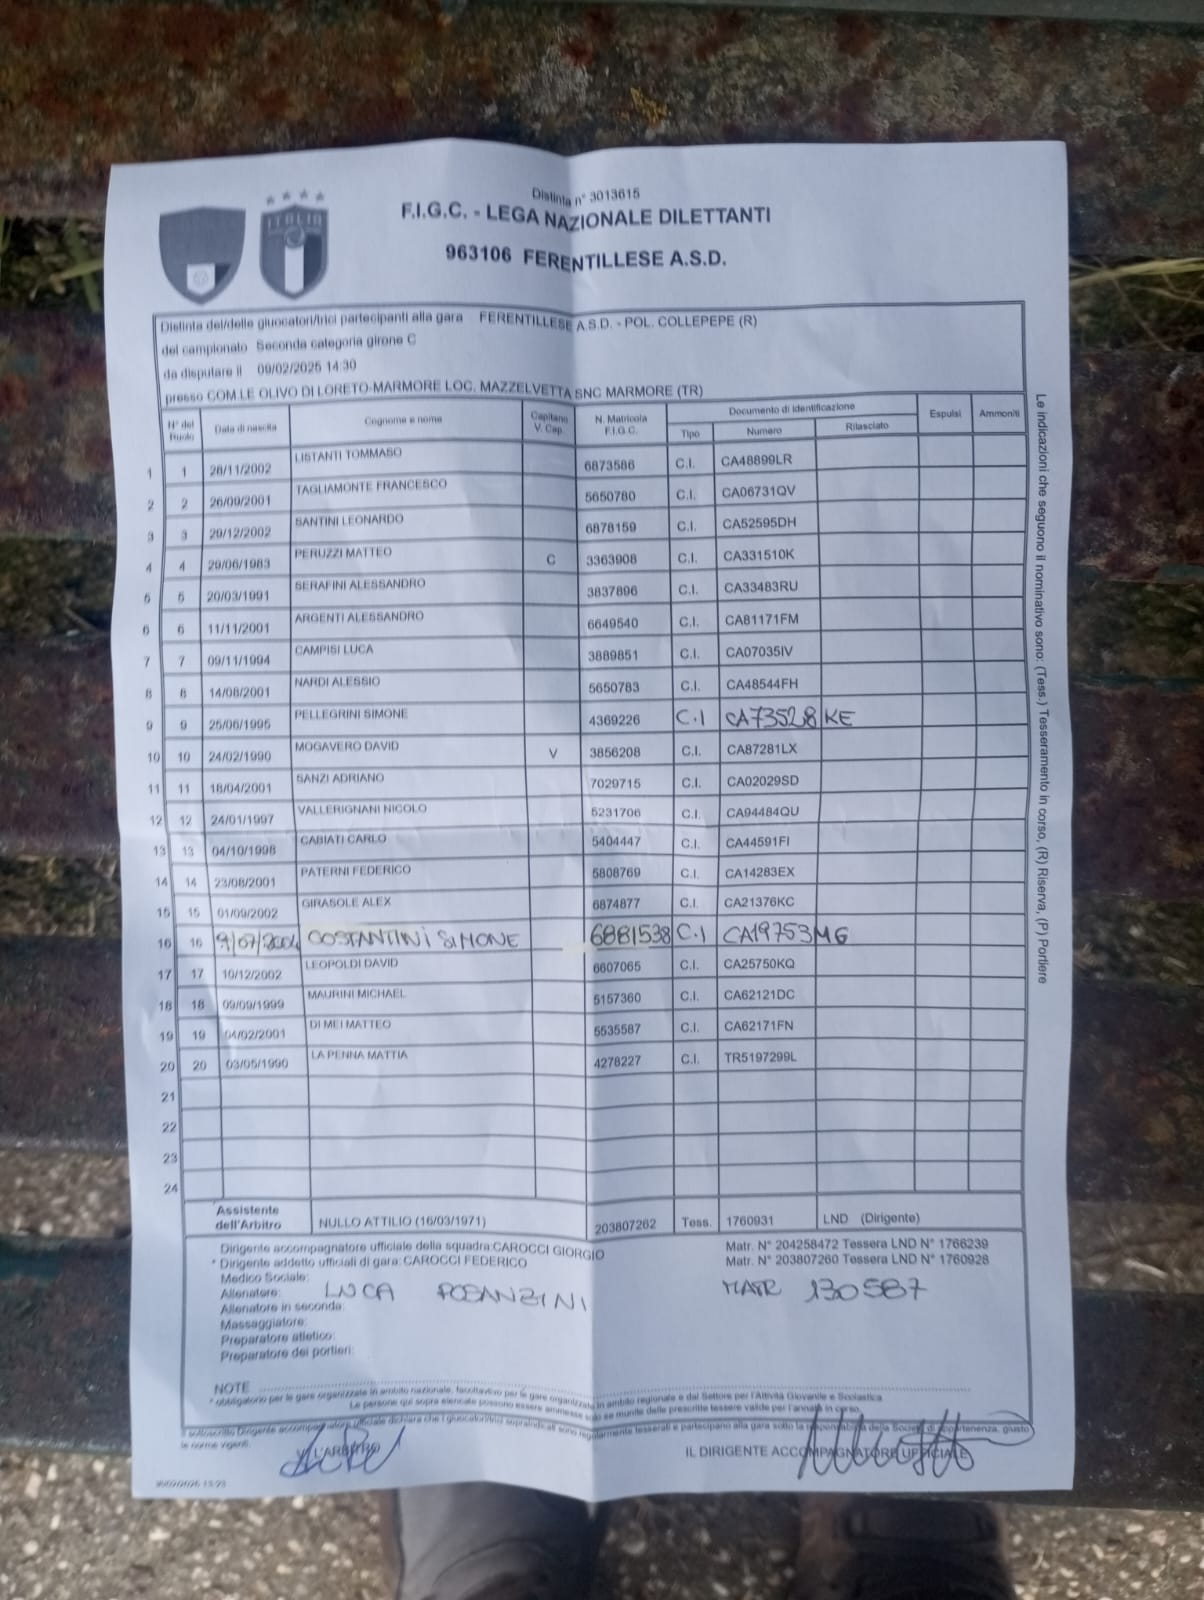 ITALIA
Distinta n° 3013615
F.I.G.C. - LEGA NAZIONALE DILETTANTI
963106 FERENTILLESE A.S.D.
Distinta dei/delle giuocatori/trici partecipanti alla gara FERENTILLESE A.S.D. - POL. COLLEPEPE (R)
del campionato Seconda categoria girone C
da disputare il 09/02/2025 14:30
presso COM.LE OLIVO DI LORETO-MARMORE LOC. MAZZELVETTA SNC MARMORE (TR)
N° del Ruolo Data di nascita Cognome e nome Capitano V. Cap. N. Matricola F.I.G.C. Documento di identificazione Espulsi Ammoniti
Tipo Numero Rilasciato
1 1 28/11/2002 LISTANTI TOMMASO 6873586 C.I. CA48899LR
2 2 26/09/2001 TAGLIAMONTE FRANCESCO 5650780 C.I. CA06731QV
3 3 29/12/2002 SANTINI LEONARDO 6878159 C.I. CA52595DH
4 4 29/06/1983 PERUZZI MATTEO C 3363908 C.I. CA331510K
5 5 20/03/1991 SERAFINI ALESSANDRO 3837896 C.I. CA33483RU
6 6 11/11/2001 ARGENTI ALESSANDRO 6649540 C.I. CA81171FM
7 7 09/11/1994 CAMPISI LUCA 3889851 C.I. CA07035IV
8 8 14/08/2001 NARDI ALESSIO 5650783 C.I. CA48544FH
9 9 25/06/1995 PELLEGRINI SIMONE 4369226 C.I CA73528KE
10 10 24/02/1990 MOGAVERO DAVID V 3856208 C.I. CA87281LX
11 11 18/04/2001 SANZI ADRIANO 7029715 C.I. CA02029SD
12 12 24/01/1997 VALLERIGNANI NICOLO 5231706 C.I. CA94484QU
13 13 04/10/1998 CABIATI CARLO 5404447 C.I. CA44591FI
14 14 23/08/2001 PATERNI FEDERICO 5808769 C.I. CA14283EX
15 15 01/09/2002 GIRASOLE ALEX 6874877 C.I. CA21376KC
16 16 9/07/2004 COSTANTINI SIMONE 6881538 C.I CA19753MG
17 17 10/12/2002 LEOPOLDI DAVID 6607065 C.I. CA25750KQ
18 18 09/09/1999 MAURINI MICHAEL 5157360 C.I. CA62121DC
19 19 04/02/2001 DI MEI MATTEO 5535587 C.I. CA62171FN
20 20 03/05/1990 LA PENNA MATTIA 4278227 C.I. TR5197299L
21
22
23
24
Assistente dell'Arbitro NULLO ATTILIO (16/03/1971) 203807262 Tess. 1760931 LND (Dirigente)
Dirigente accompagnatore ufficiale della squadra:CAROCCI GIORGIO Matr. N° 204258472 Tessera LND N° 1766239
* Dirigente addetto ufficiali di gara: CAROCCI FEDERICO Matr. N° 203807260 Tessera LND N° 1760928
Medico Sociale:
Allenatore: LUCA POSANZINI MATR 130587
Allenatore in seconda:
Massaggiatore:
Preparatore atletico:
Preparatore dei portieri:
NOTE
* obbligatorio per le gare organizzate in ambito nazionale, facoltativo per le gare organizzate in ambito regionale e dal Settore per l'Attività Giovanile e Scolastica
Le persone qui sopra elencate possono essere ammesse solo se munite delle prescritte tessere valide per l'annata in corso.
Il sottoscritto Dirigente accompagnatore ufficiale dichiara che i giuocatori/trici sopraindicati sono regolarmente tesserati e partecipano alla gara sotto la responsabilità della Società di appartenenza, giusto
le norme vigenti.
L'ARBITRO IL DIRIGENTE ACCOMPAGNATORE UFFICIALE
Le indicazioni che seguono il nominativo sono: (Tess.) Tesseramento in corso, (R) Riserva, (P) Portiere